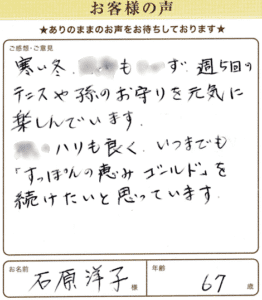 お客様の声
★ありのままのお声をお待ちしております★
ご感想・ご意見
寒い冬、も ず 週5回の
テニスや孫のお守りを元気に
楽しんでいます。
ハリも良く、いつまでも
「すっぽんの恵みゴールド」を
続けたいと思っています。
お名前 石原洋子 様 年齢 67 歳